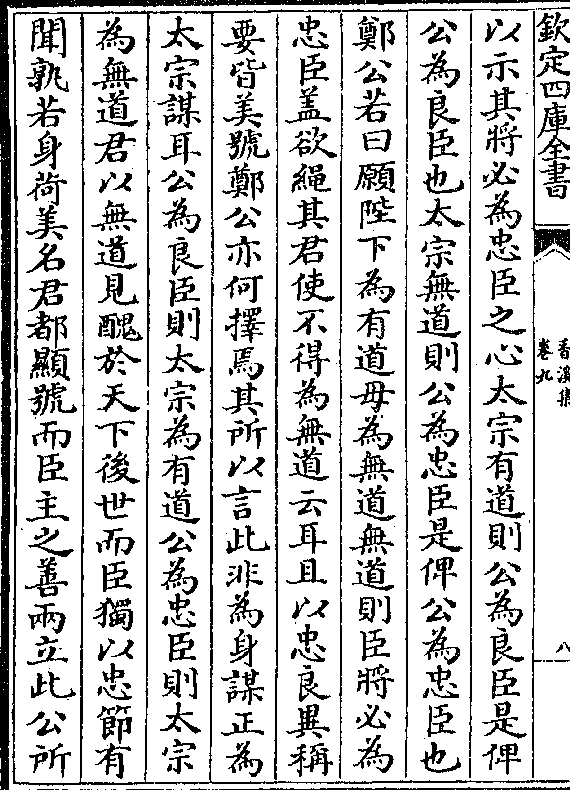 欽定四庫全書
香溪集
卷九
八
以示其將必為忠臣之心太宗有道則公為良臣是俾
公為良臣也太宗無道則公為忠臣是俾公為忠臣也
鄭公若曰願陛下為有道毋為無道無道則臣將必為
忠臣盖欲繩其君使不得為無道云耳且以忠良異稱
要皆美號鄭公亦何擇焉其所以言此非為身謀正為
太宗謀耳公為良臣則太宗為有道公為忠臣則太宗
為無道君以無道見醜於天下後世而臣獨以忠節有
聞孰若身荷美名君都顯號而臣主之善兩立此公所